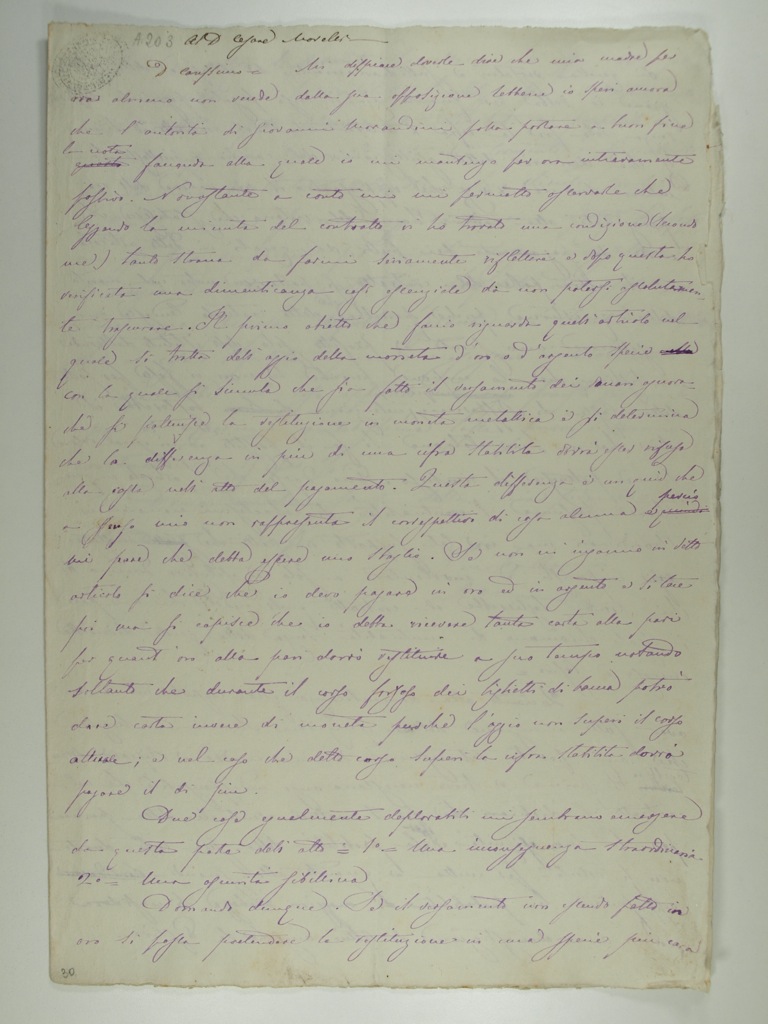 A.203 Al D Cesare Morelli
D carissimo = Mi dispiace doverle dire che mia madre per
ora almeno non recede dalla sua opposizione sebbene io speri ancora
che l'autorità di Giovanni possa portare a buon fine
la nota questa faccenda alla quale io mi mantengo per ora intieramente
passivo. Nonostante a conto mio mi permetto osservarle che
leggendo la minuta del contratto vi ho trovato una condizione (secondo
me) tanto strana da farmi seriamente riflettere e dopo questa ho
verificata una dimenticanza così essenziale da non potersi assolutamen-
te trascurare. Il primo obietto che faccio riguarda quell'articolo nel
quale si tratta dell'aggio della moneta d'oro o d'argento specie
con la quale si simula che sia fatto il versamento dei denari ognora
che si la restituzione in moneta metallica e si determina
che la differenza in più di una cifra stabilita dovrà esser rifusa
alla nell'atto del pagamento. Questa differenza è un quid che
a senso mio non rappresenta il correspettivo di cosa alcuna e perciò quindi
mi pare che debba essere uno sbaglio. Se non mi inganno in detto
articolo si dice che io devo pagare in oro ed in argento e si tace
poi ma si capisce che io debba ricevere tanta carta alla pari
per quant'oro alla pari dovrò restituire a suo tempo notando
soltanto che durante il corso forzoso dei biglietti di banca potrò
dare carta invece di moneta perché l'aggio non superi il corso
attuale; e nel caso che detto corso superi la cifra stabilita dovrò
pagare il di più.
Due cose egualmente deplorabili mi sembrano emergere
da questa parte dell'atto = 1o = Una inconseguenza straordinaria
2o = Una oscurità sibillina
Domando dunque. Se il versamento non essendo fatto in
oro si possa pretendere la restituzione in una specie più cara
30